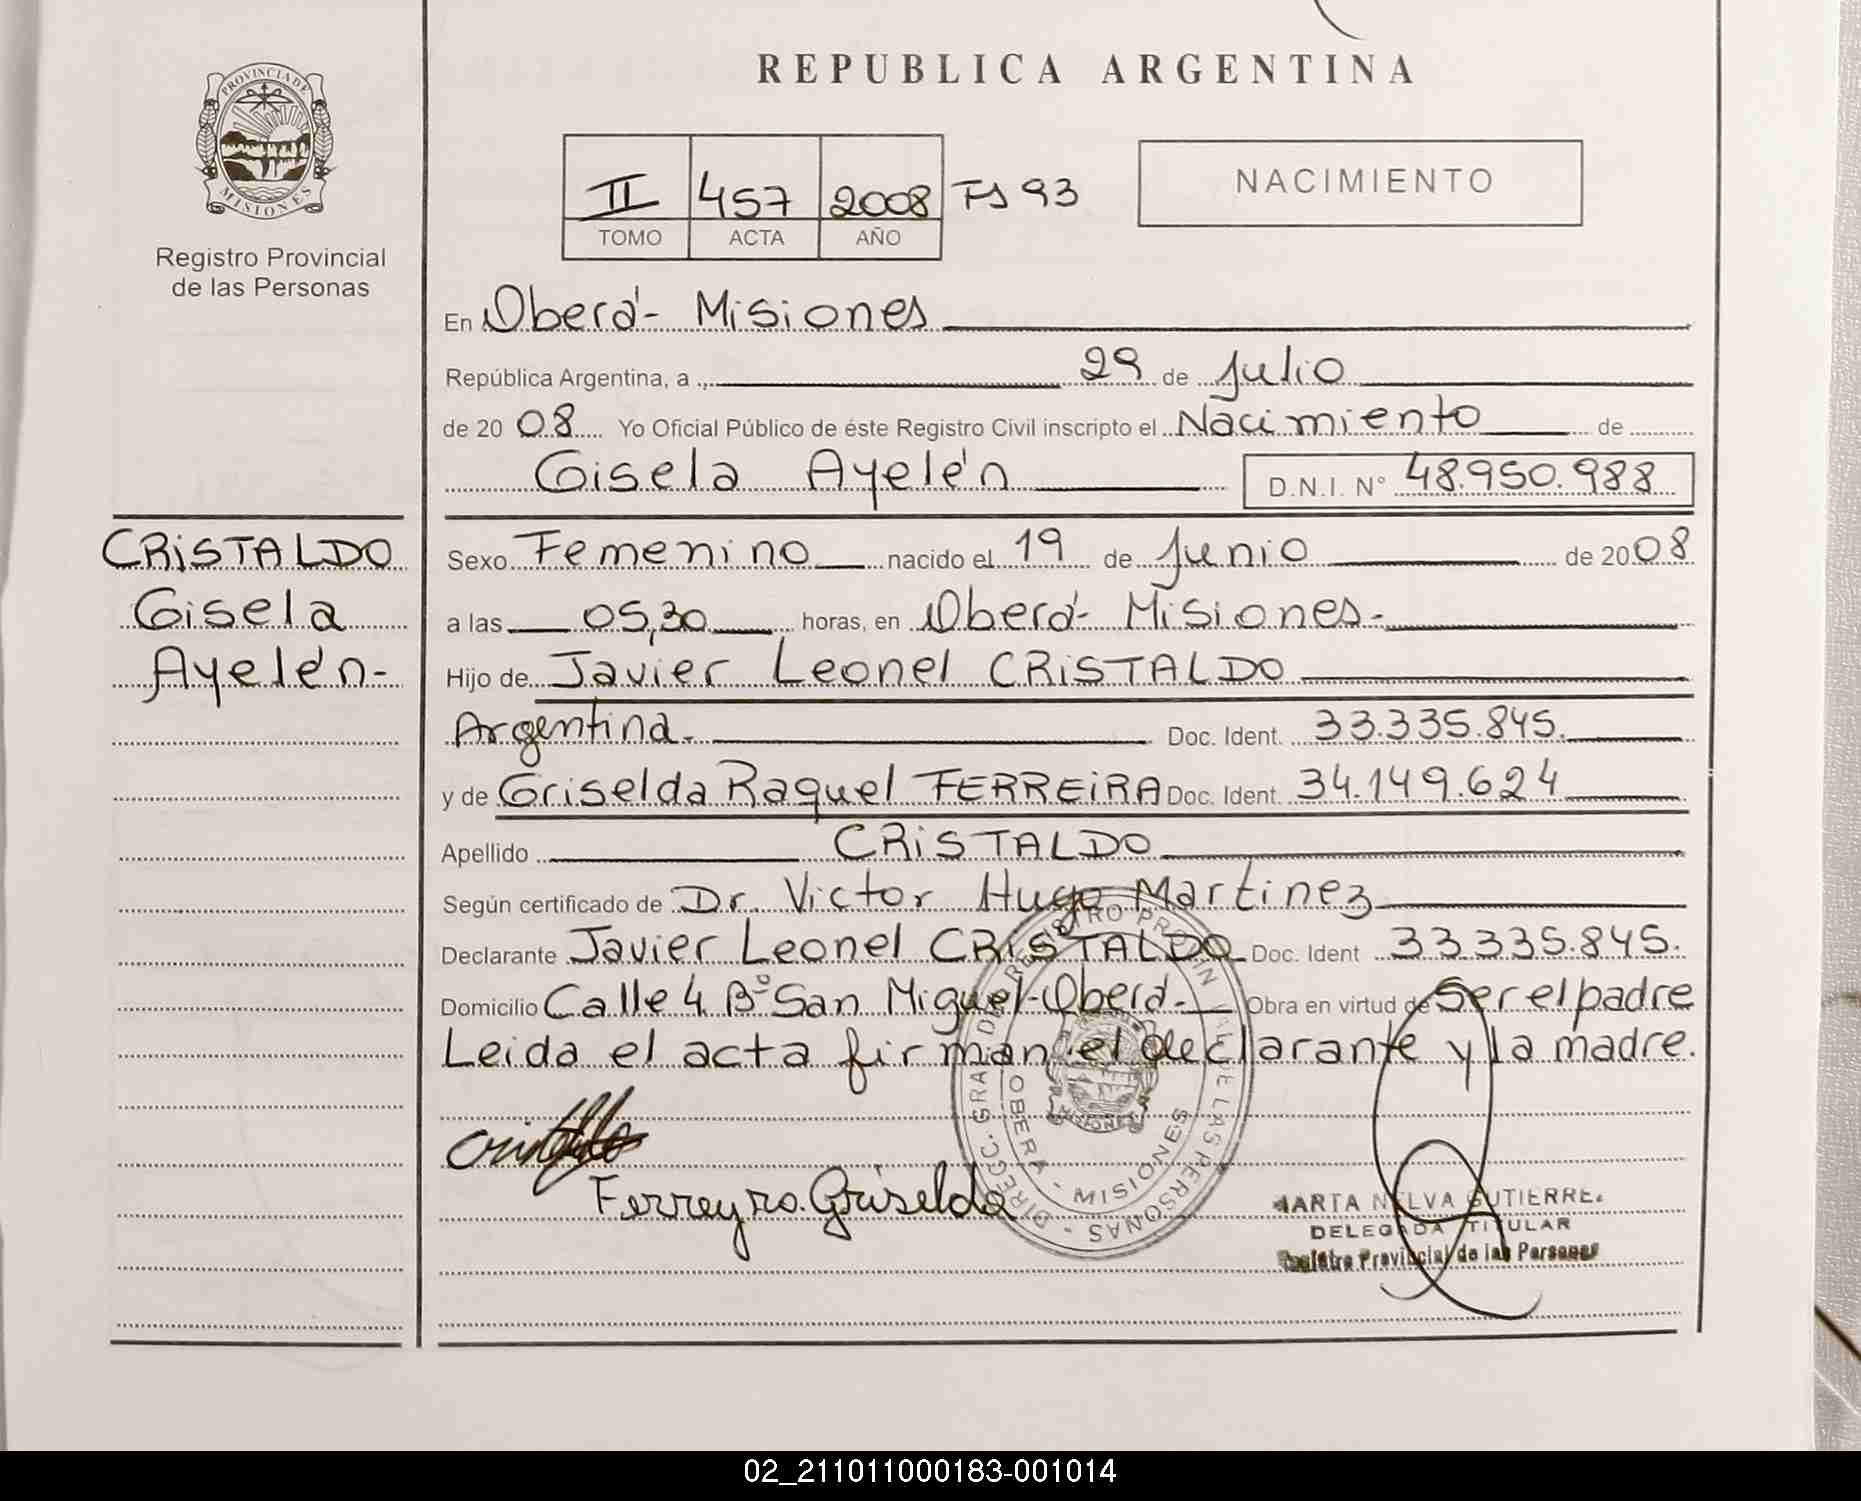 REPUBLICA ARGENTINA
PROVINCIA DE
MISIONES
Registro Provincial
de las Personas
II 457 2008 Fs 93
TOMO ACTA AÑO
NACIMIENTO
En Oberá- Misiones
República Argentina, a 29 de Julio
de 2008 Yo Oficial Público de éste Registro Civil inscripto el Nacimiento de
Gisela Ayelén D.N.I. N° 48.950.988
CRiSTALDO
Gisela
Ayelén-
Sexo Femenino nacido el 19 de Junio de 2008
a las 05,30 horas, en Oberá- Misiones-
Hijo de Javier Leonel CRiSTALDO
Argentina- Doc. Ident. 33.335.845.
y de Griselda Raquel FERREiRA Doc. Ident. 34.149.624
Apellido CRiSTALDO
Según certificado de Dr. Victor Hugo Martinez
Declarante Javier Leonel CRiSTALDO Doc. Ident 33.335.845.
Domicilio Calle 4 B° San Miguel-Oberá- Obra en virtud de Ser el padre
Leida el acta firman el declarante y la madre.
DIRECC. GRAL. DE REGISTRO PROVINCIAL DE LAS PERSONAS -
OBERA - MISIONES
MISIONES
Ferreyra Griselda
MARTA NELVA GUTIERREZ
DELEGADA TITULAR
Registro Provincial de las Personas
02_211011000183-001014